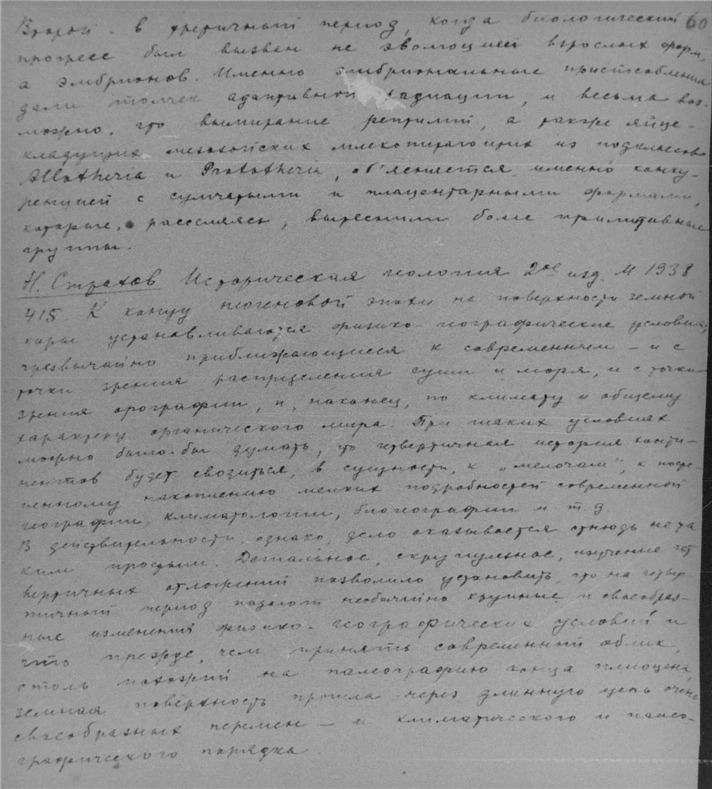 Второй - в третичный период, когда биологический 60
прогресс был вызван не эволюцией взрослых форм,
а эмбрионов. Именно эмбриональные приспособления
дали толчек адаптивной радиации, и весьма воз-
можно, что вымирание рептилий, а также яйце-
кладущих мезозойских млекопитающих из подклассов
Allotheria и Prototheria, об'ясняется именно конку-
ренцией с сумчатыми и плацентарными формами,
которые, расселяясь, вытеснили более примитивные
группы.
Н. Страхов Историческая геология 2ое изд. М 1938
415. К концу неогеновой эпохи на поверхности земной
коры устанавливаются физико-географические условия,
чрезвычайно приближающиеся к современным - и с
точки зрения распределения суши и моря, и с точки
зрения орографии, и, наконец, по климату и общему
характеру органического мира. При таких условиях
можно было бы думать, что четвертичная история конти-
нентов будет сводиться, в сущности, к "мелочам", к посте-
пенному накоплению мелких подробностей современной
географии, климатологии, биогеографии и т д
В действительности, однако, дело оказывается отнюдь не та
ким простым. Детальное, скрупулезное, изучение чет
вертичных отложений позволило установить, что на четвер-
тичный период падают необычайно крупные и своеобраз-
ные изменения физико-географических условий и
что прежде, чем принять современный облик,
столь похожий на палеографию конца плиоцена,
земная поверхность прошла через длинную цепь очень
своеобразных перемен - и климатического и палео-
графического порядка.